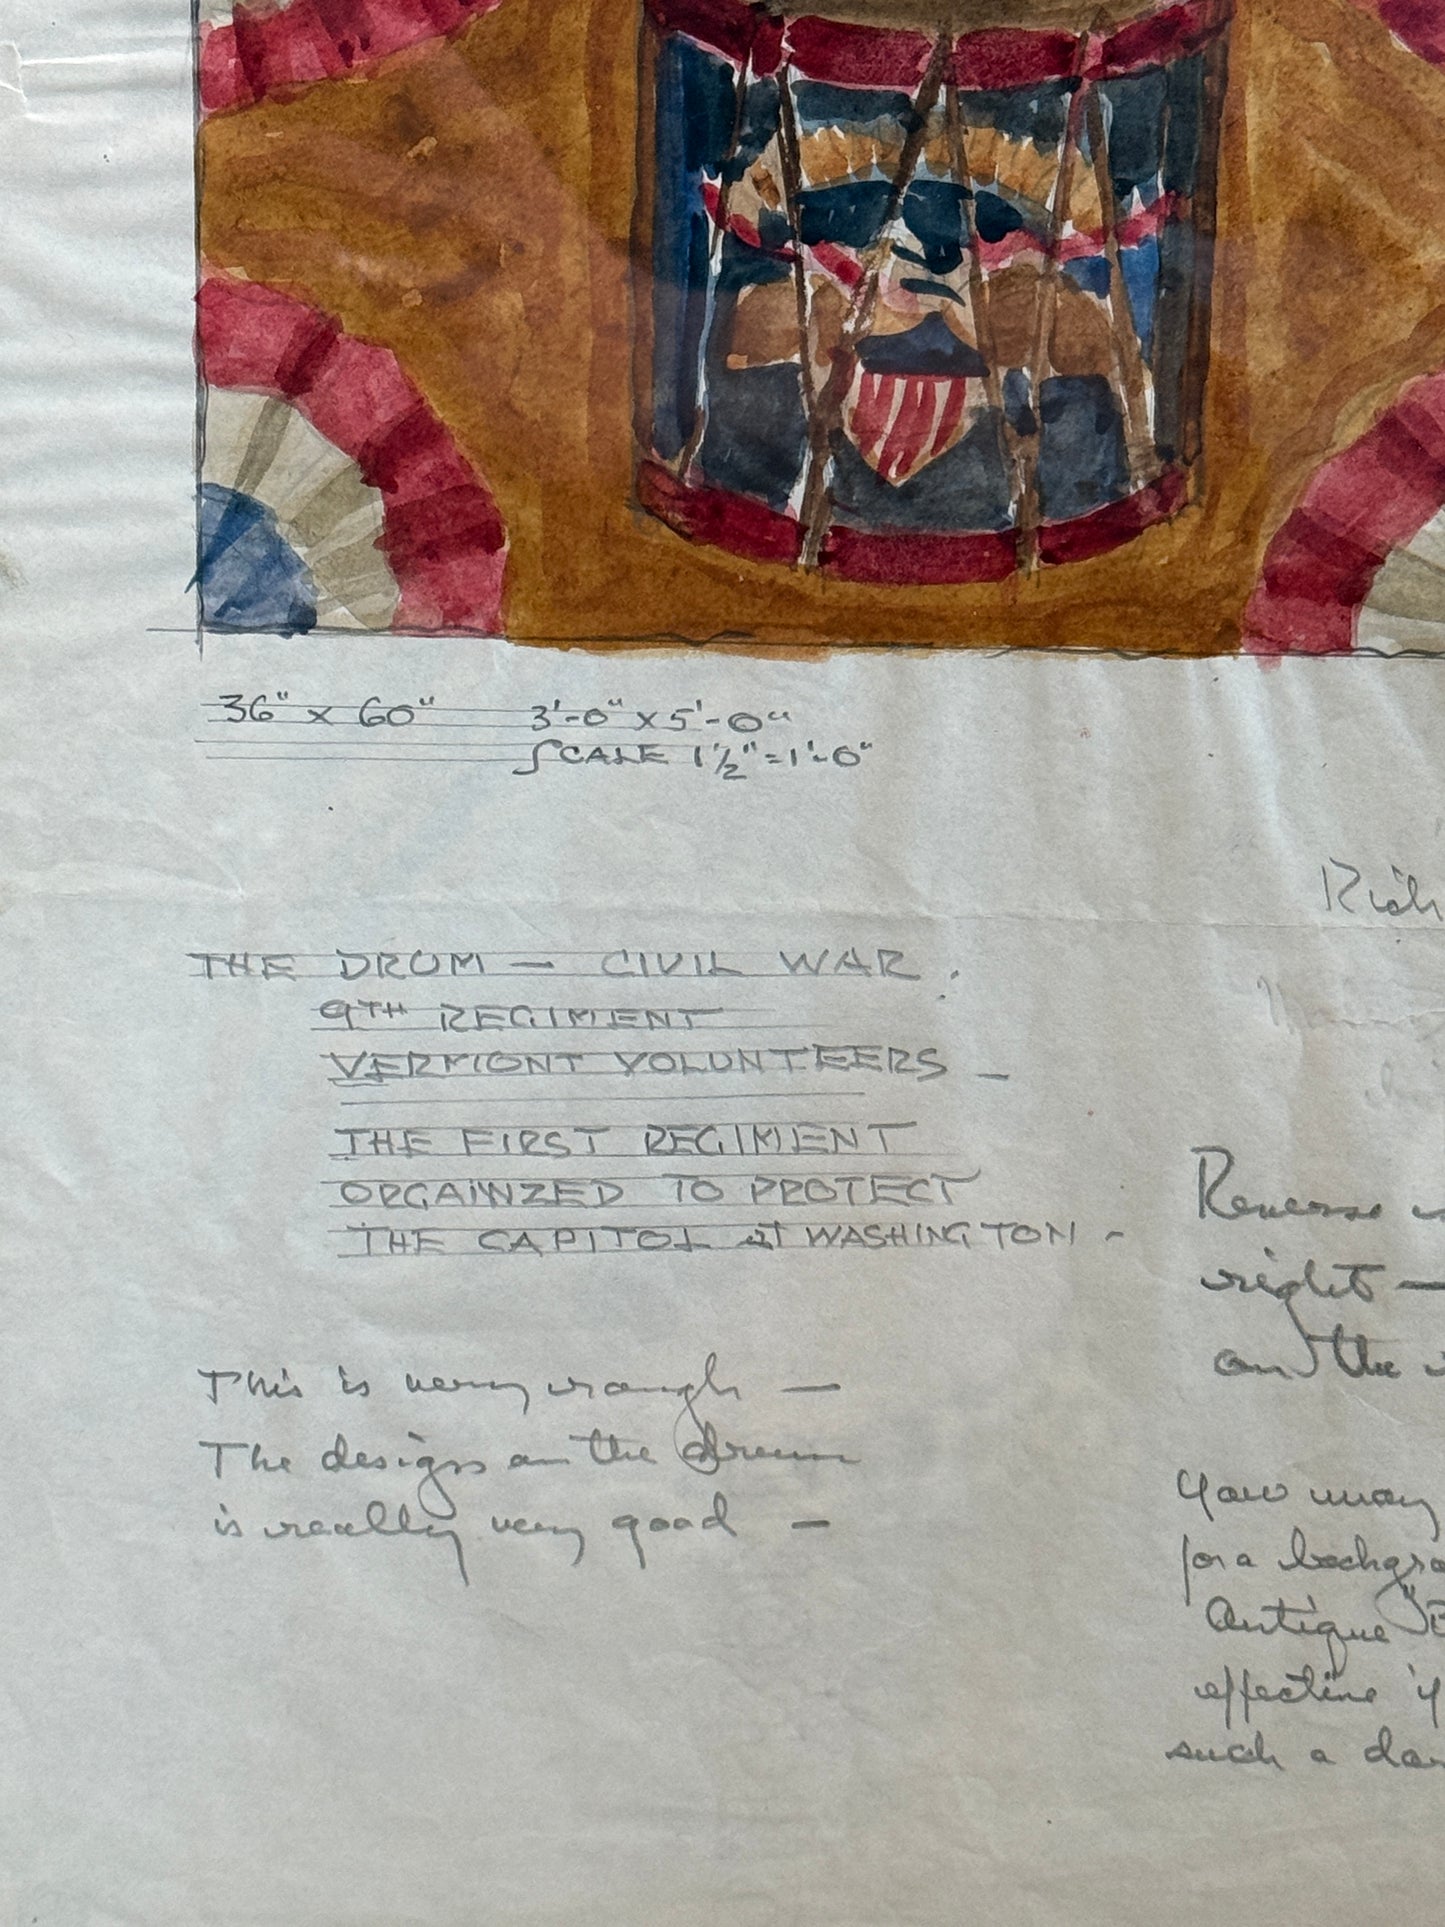 36" x 60" 3'-0" x 5'-0"
SCALE 1 1/2" = 1'-0"
Rich
THE DRUM — CIVIL WAR.
9TH REGIMENT
VERMONT VOLUNTEERS —
THE FIRST REGIMENT
ORGAINZED TO PROTECT
THE CAPITOL AT WASHINGTON -
Reverse
right —
on the
This is very rough —
The design on the drum
is really very good —
You may
for a backgro
Antique
effective if
such a dar